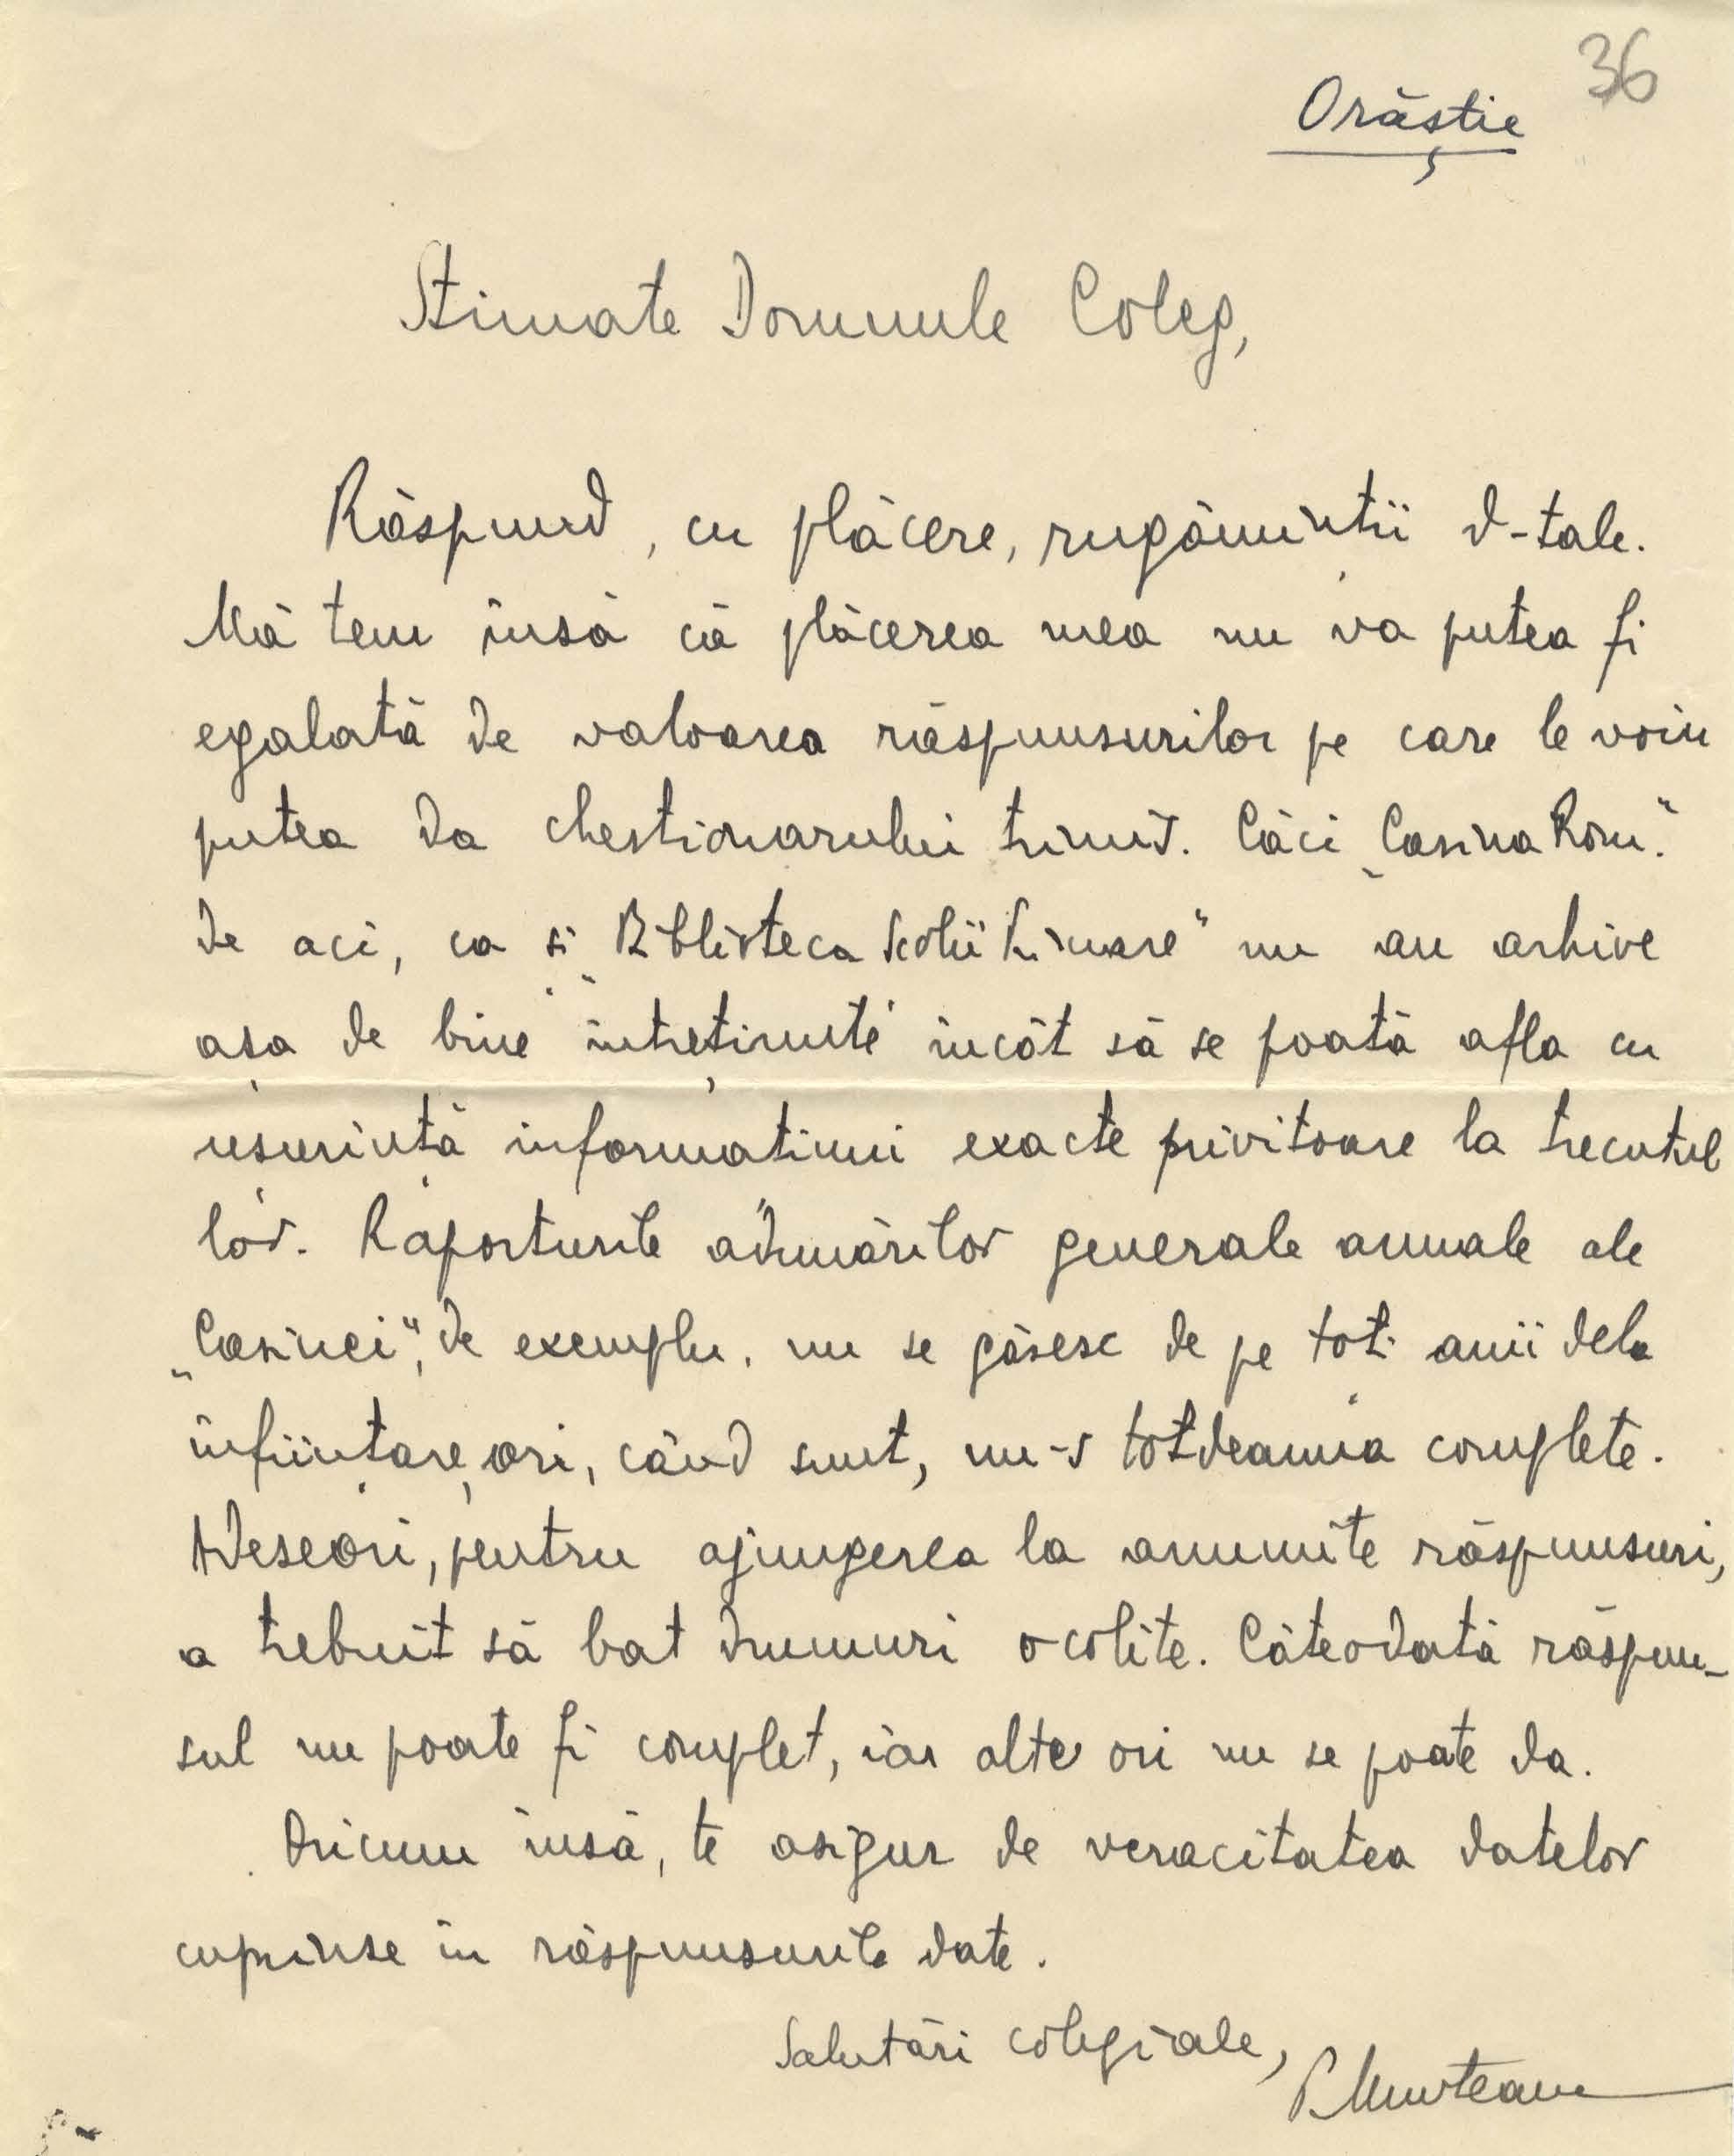 36
Orăștie
Stimate Domnule Coleg,
Răspund, cu plăcere, rugăminții d-tale.
Mă tem însă că plăcerea mea nu va putea fi
egalată de valoarea răspunsurilor pe care le voiu
putea da chestionarului trimis. Căci „Casina Rom."
de aci, ca și „Biblioteca Școlii Primare" nu au arhive
așa de bine întreținute încât să se poată afla cu
ușurință informațiuni exacte privitoare la trecutul
lor. Raporturile adunărilor generale anuale ale
„Casinei", de exemplu, nu se găsesc de pe toți anii dela
înființare, ori, când sunt, nu-s totdeauna complete.
Adeseori, pentru ajungerea la anumite răspunsuri,
a trebuit să bat drumuri ocolite. Câteodată răspun-
sul nu poate fi complet, iar alte ori nu se poate da.
Oricum însă, te asigur de veracitatea datelor
cuprinse în răspunsurile date.
Salutări colegiale,
P. Munteanu